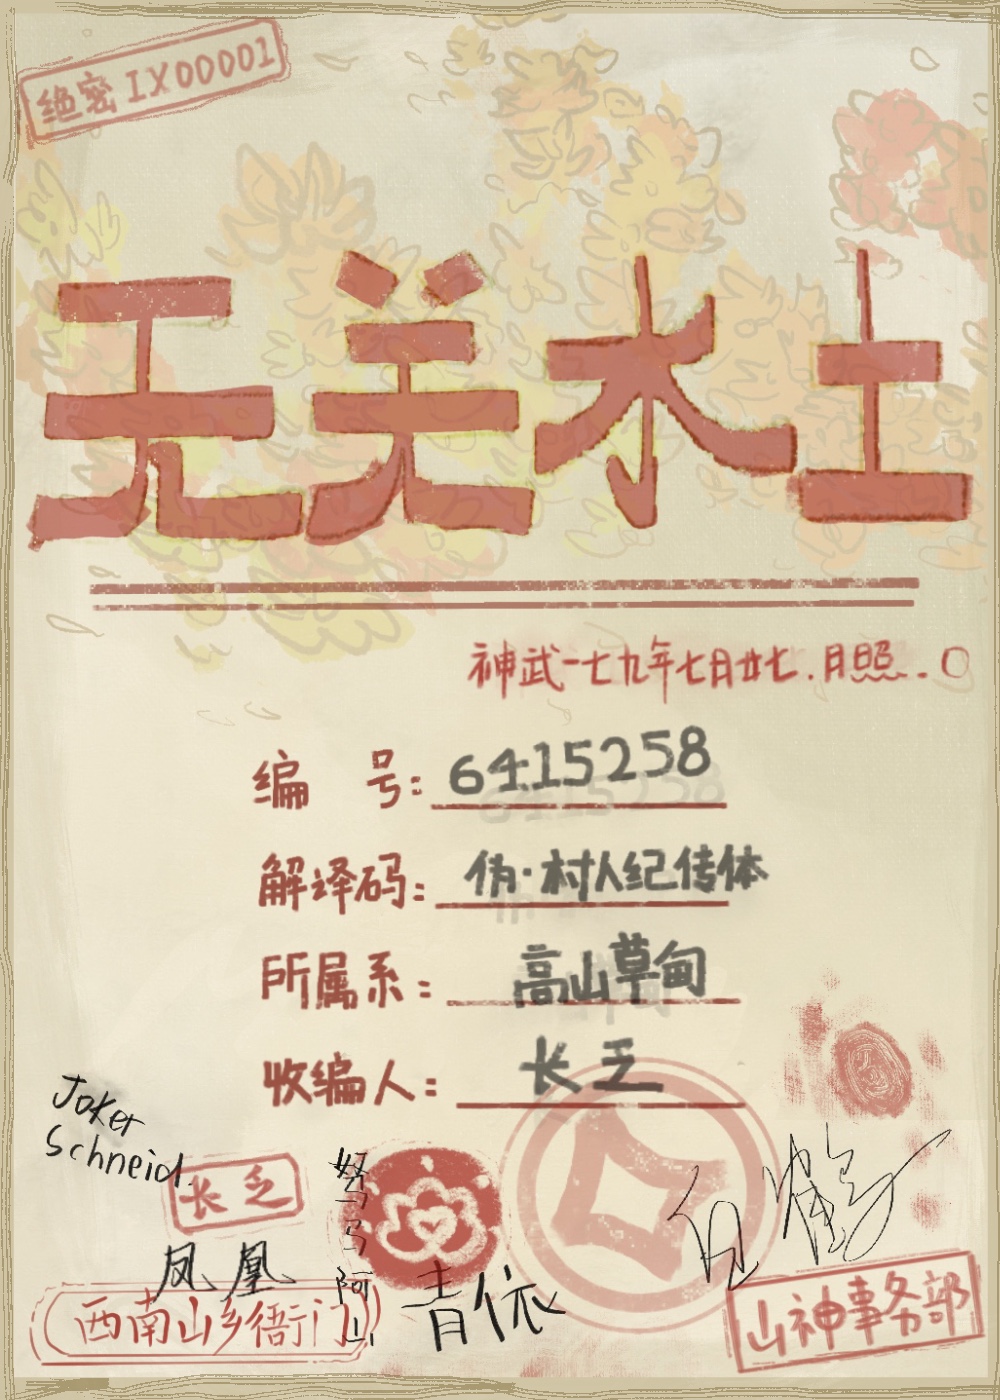 绝密 IX00001
无关水土
神武一七九年七月廿七.月照.
编 号:6415258
解译码:伪·村人纪传体
所属系:高山草甸
收编人:长乏
Joker
Schneid.
长乏
凤凰
西南山乡衙门
驽马阿山
青依
白鹤
山神事务部